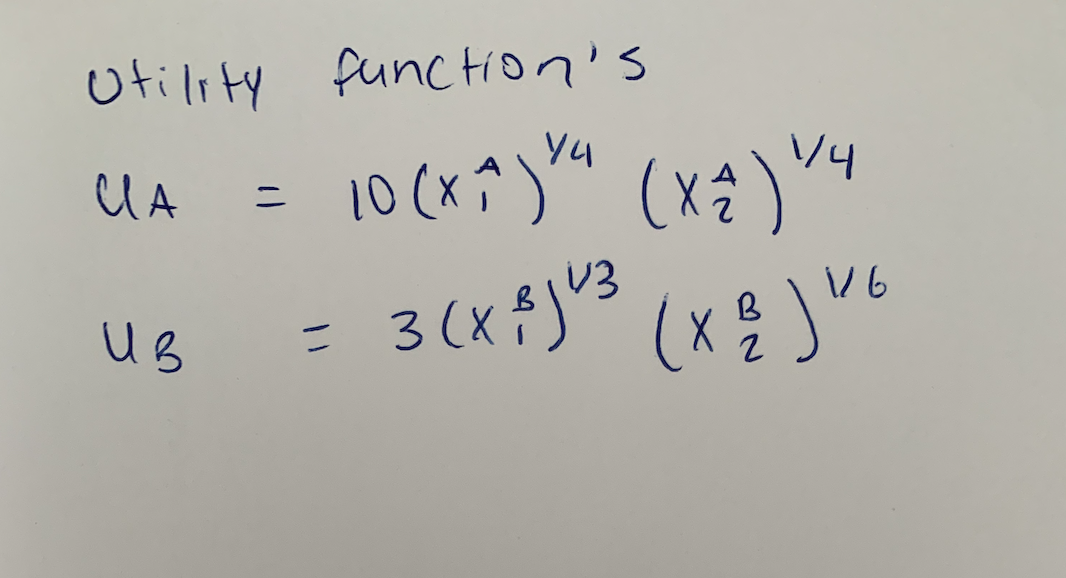 Utility function's
UA = 10(X₁ᴬ)^1/4 (X₂ᴬ)^1/4
UB = 3(X₁ᴮ)^1/3 (X₂ᴮ)^1/6